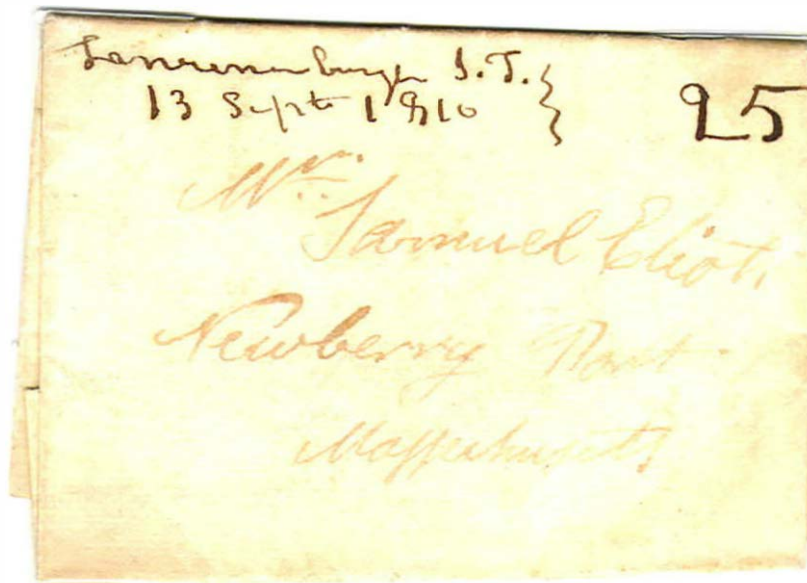 Lawrenceburgh I.T.
13 Sept 1810
25
Mr. Samuel Eliot,
Newberry Port
Massachusetts